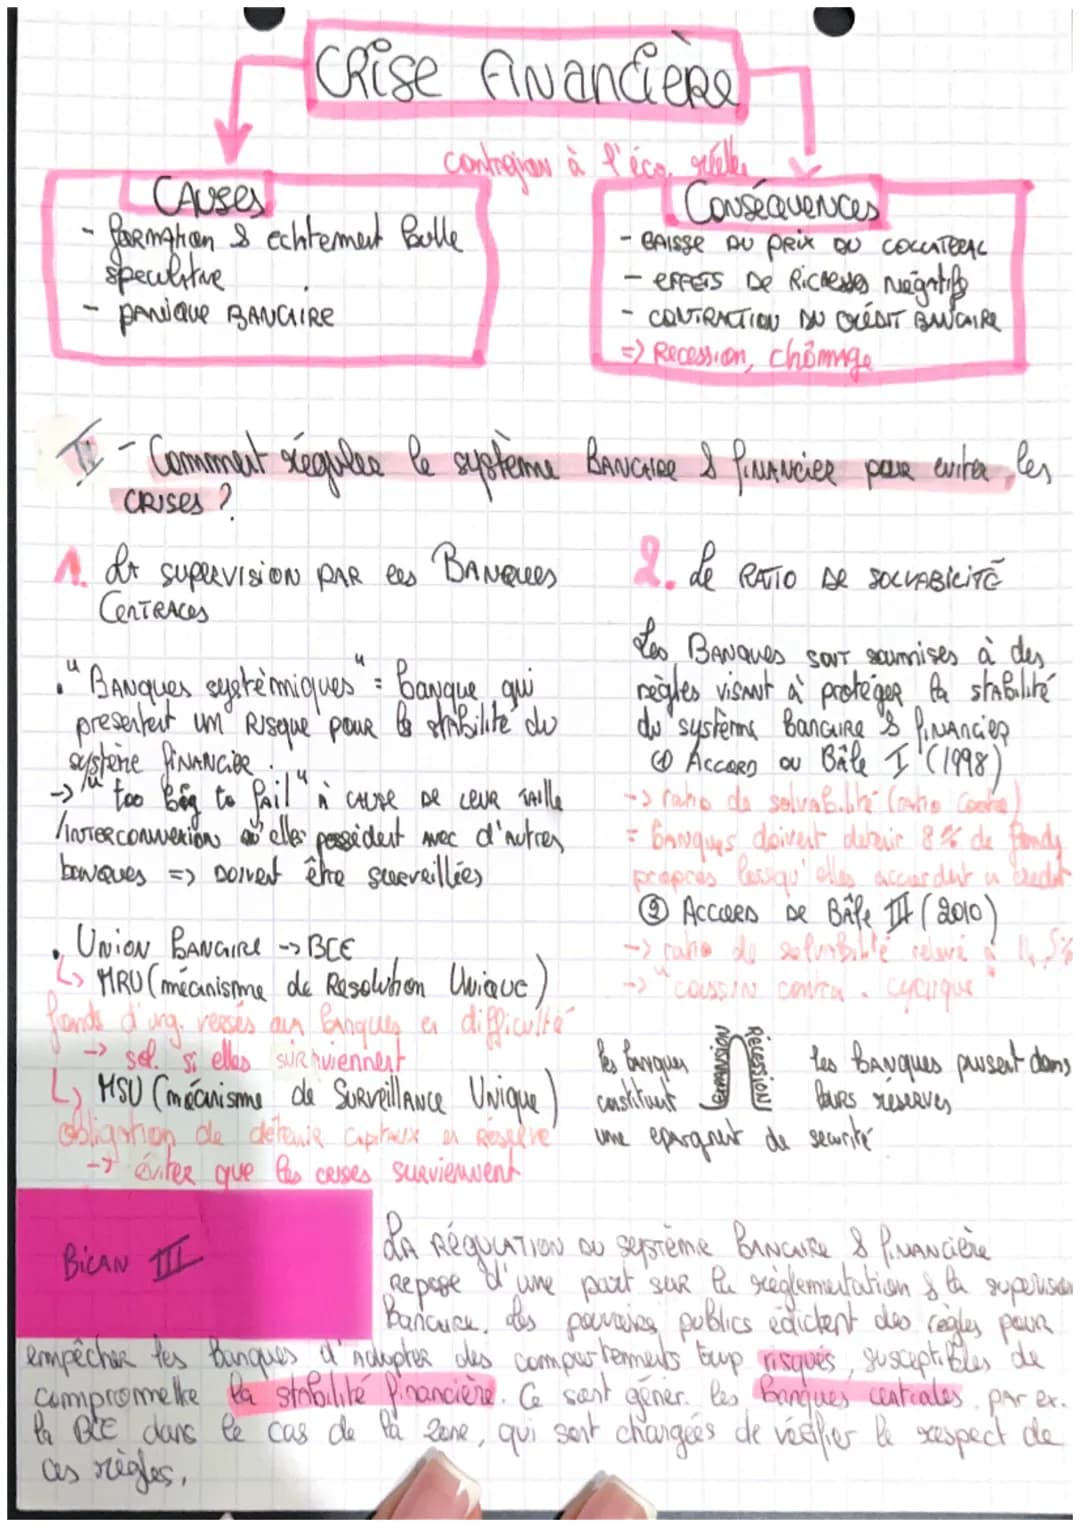 CRISE FINANCIÈRE
contagion à l'éco. réelle
CAUSES
- FORMATION & éclatement bulle
spéculative
- PANIQUE BANCAIRE
CONSÉQUENCES
- BAISSE DU PRIX DU COLLATERAL
- EFFETS DE RICHESSES Négatifs
- CONTRACTION DU CRÉDIT BANCAIRE
=> Recession, chômage
III - Comment réguler le système BANCAIRE & FINANCIER pour éviter les
CRISES ?
1. LA SUPERVISION PAR les BANQUES
CENTRALES
. "BANQUES systèmiques" = banque qui
présentent un RISQUE pour la stabilité du
système FINANCIER.
-> "too big to fail" à CAUSE DE LEUR TAILLE
/INTERCONNEXION qu'elles possèdent avec d'autres
banques => DOIVENT être surveillées
. UNION BANCAIRE -> BCE
↳ MRU (mécanisme de Résolution Unique)
fonds d'urg. versés aux banques en difficulté
-> sol. si elles surviennent
↳ MSU (mécanisme de SURVEILLANCE Unique)
obligation de détenir capitaux en Réserve
-> éviter que les crises surviennent
2. Le RATIO DE SOLVABILITÉ
Les BANQUES SONT soumises à des
règles VISANT à protéger la stabilité
du système bancaire & FINANCIER
① ACCORD DU Bâle I (1998)
-> ratio de solvabilité (ratio Cooke)
= banques doivent détenir 8% de fonds
propres lorsqu'elles accordent un crédit
② ACCORD DE Bâle III (2010)
-> ratio de solvabilité relevé à 11,5%
-> "COUSSIN contra. cyclique"
les banques
constituent
une épargne de sécurité
EXPANSION
RÉCESSION
les BANQUES puisent dans
leurs réserves
BILAN III
LA RÉGULATION DU système BANCAIRE & FINANCIÈRE
REPOSE d'une part sur la règlementation & la supervision
bancaire. Les pouvoirs publics édictent des règles pour
empêcher les banques d'adopter des comportements trop risqués, susceptibles de
compromettre la stabilité financière. Ce sont génér. les banques centrales, par ex.
la BCE dans le cas de la zone, qui sont chargées de vérifier le respect de
ces règles.